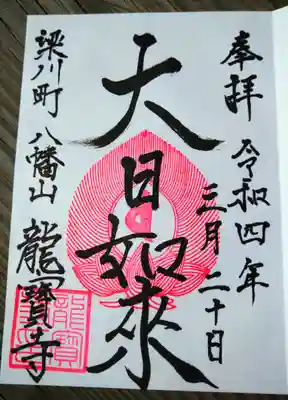 奉拝
令和四年
三月二十日
大日如来
梁川町
八幡山
龍寶寺